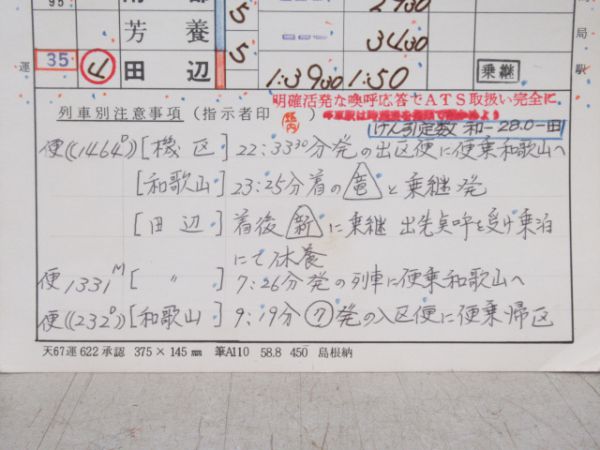 95 5 2930
芳養 5 3430
35 4 田辺 1:3930 1:50 乗継
運 局 駅
明確活発な喚呼応答でATS取扱い完全に
列車別注意事項(指示者印
けん引定数 和-28.0-田
便((1464))[機区] 22:33³⁰分発の出区便に便乗和歌山へ
[和歌山] 23:25分着の竜と乗継発
[田辺] 着後新に乗継 出先点呼を受け乗泊
にて休養
便1331M[ 〃 ] 7:26分発の列車に便乗和歌山へ
便((232D))[和歌山] 9:19分⑦発の入区便に便乗帰区
天67運622承認 375×145㎜ 筆A110 58.8 450 島根納